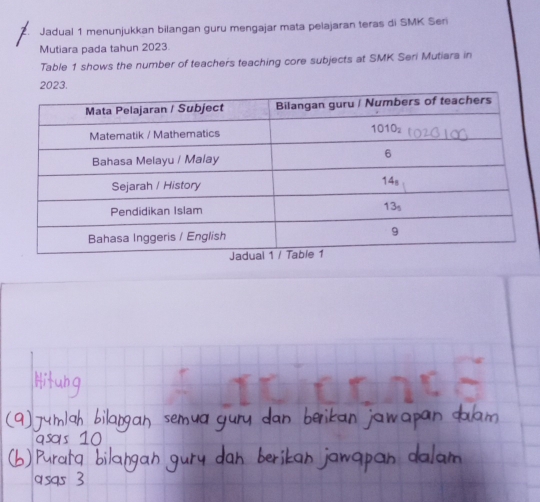 2. Jadual 1 menunjukkan bilangan guru mengajar mata pelajaran teras di SMK Seri
Mutiara pada tahun 2023.
Table 1 shows the number of teachers teaching core subjects at SMK Seri Mutiara in
2023.
Mata Pelajaran / Subject Bilangan guru / Numbers of teachers
Matematik / Mathematics 1010₂
Bahasa Melayu / Malay 6
Sejarah / History 14₈
Pendidikan Islam 13₅
Bahasa Inggeris / English 9
Jadual 1 / Table 1
Hitung
(a) Jumlah bilangan semua guru dan berikan jawapan dalam
asas 10
(b) Purata bilangan guru dan berikan jawapan dalam
asas 3